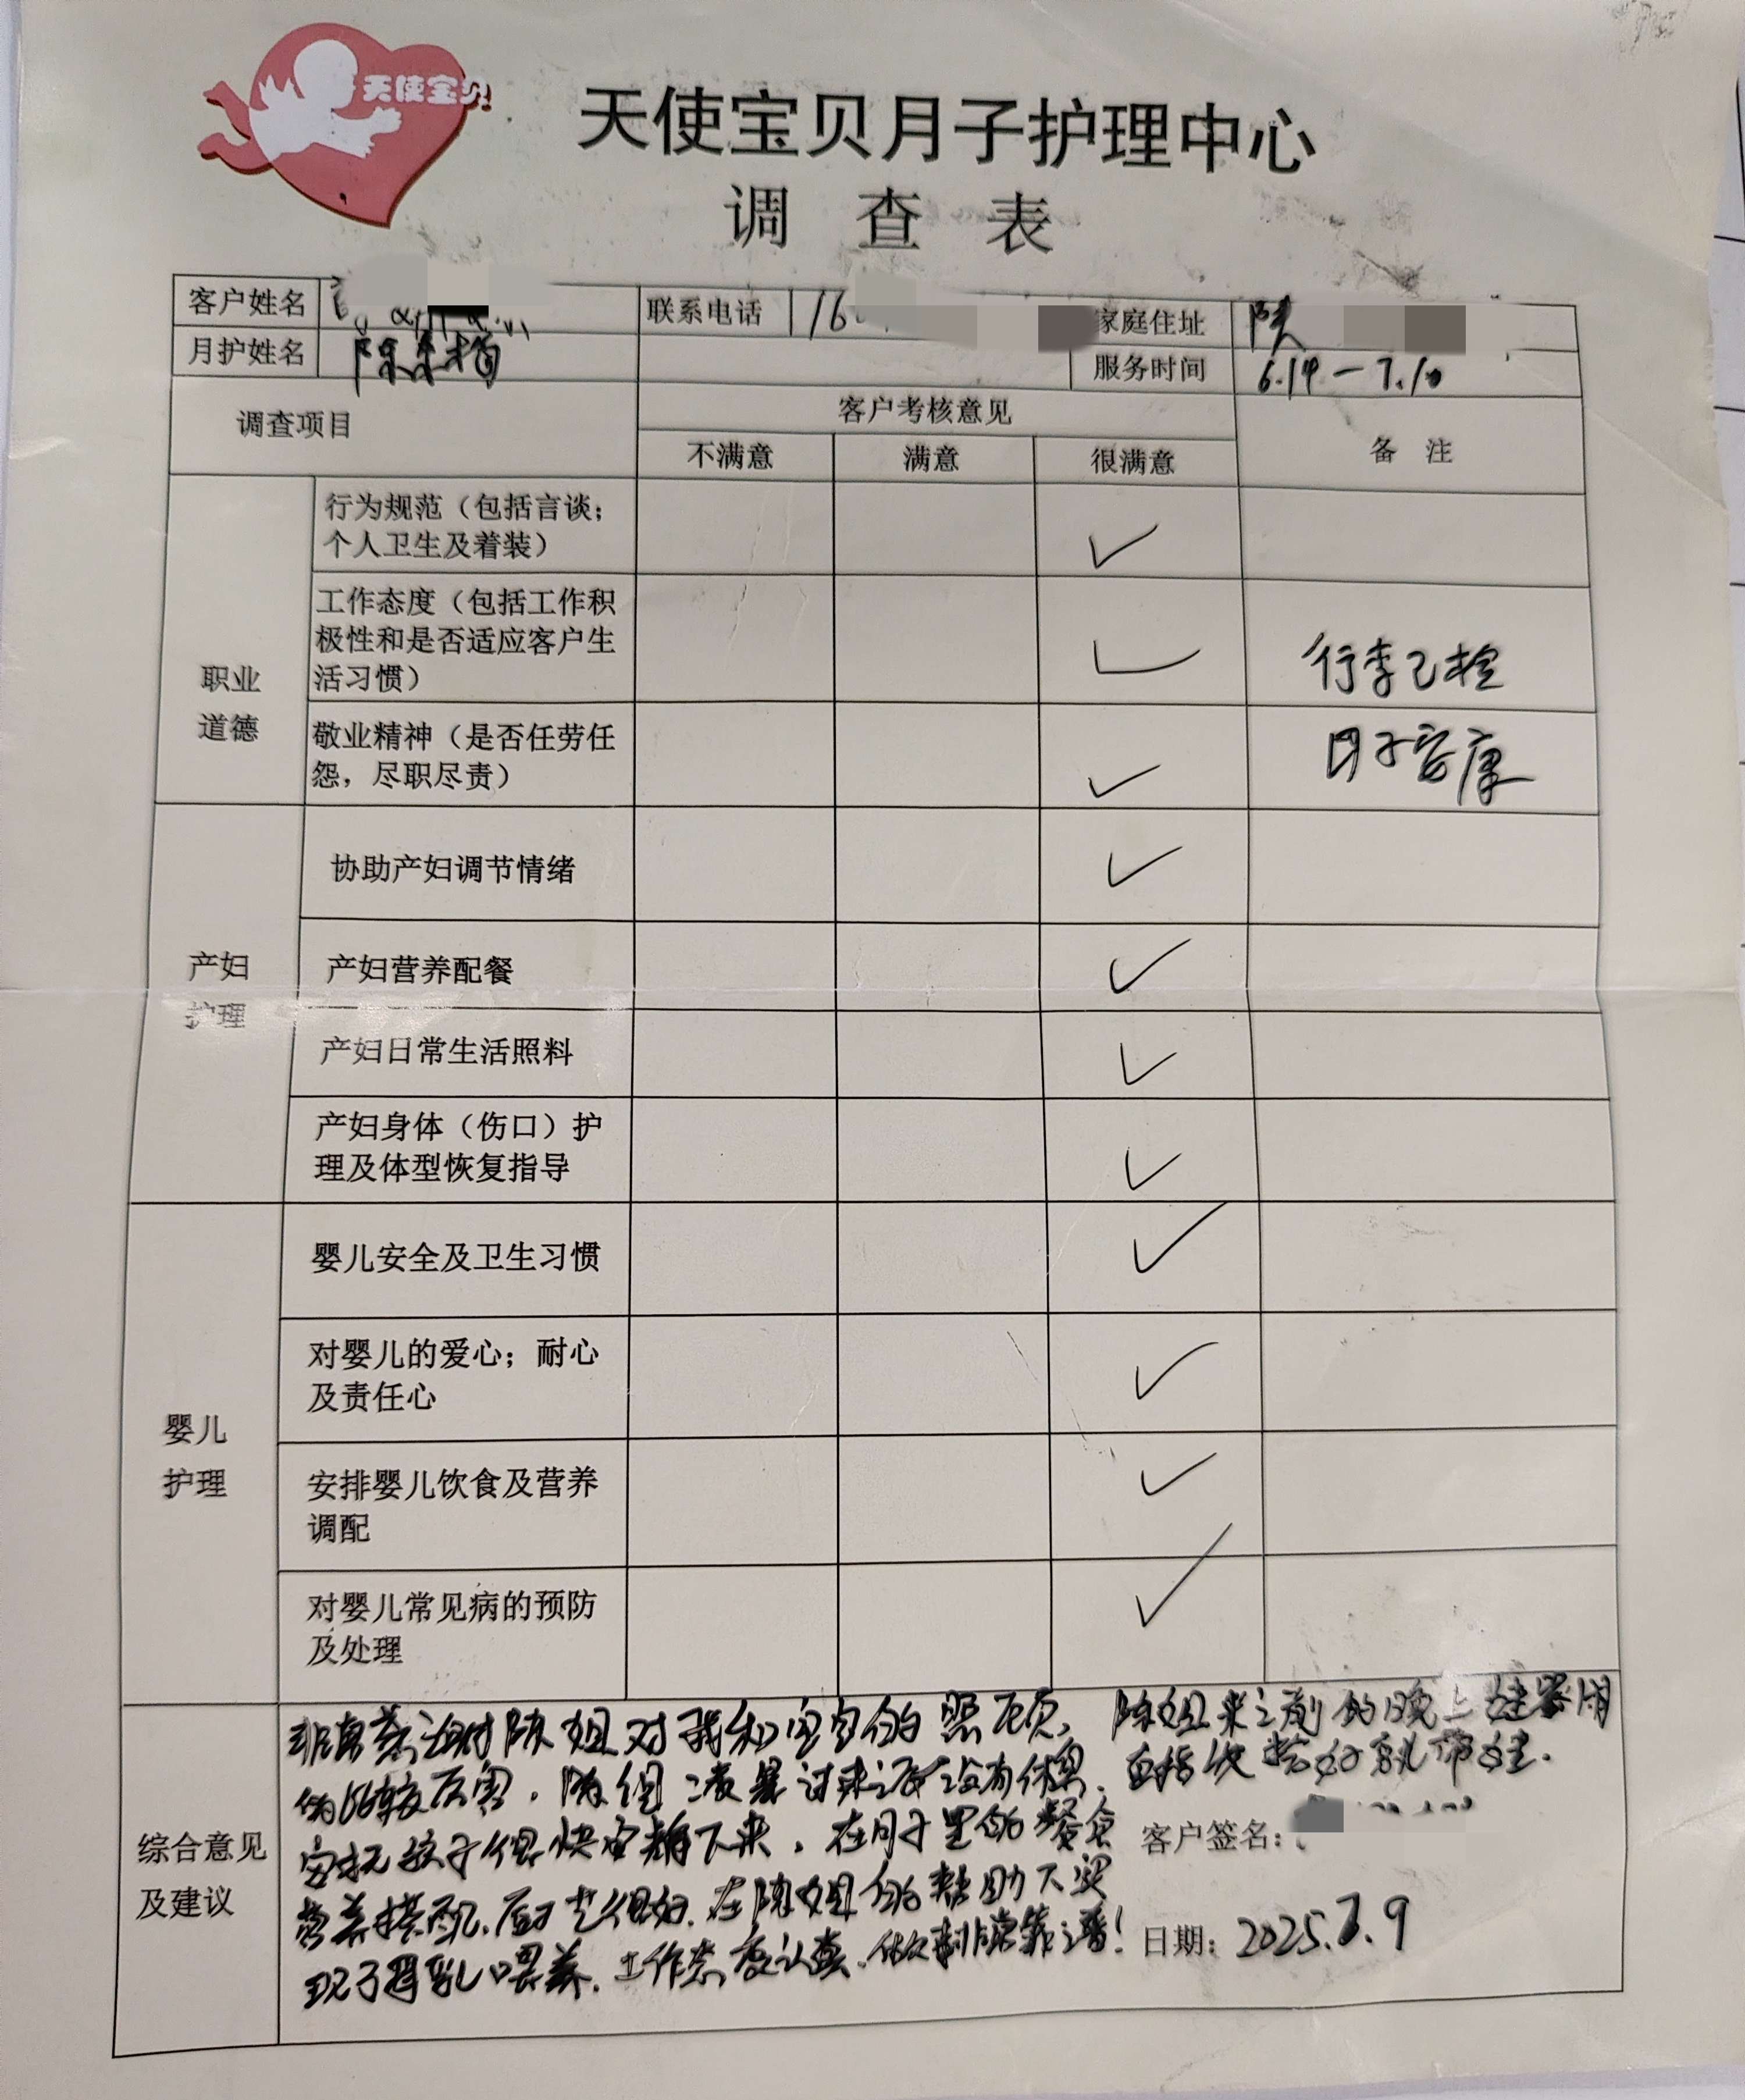 天使宝贝
天使宝贝月子护理中心
调查表
客户姓名 联系电话 16 家庭住址 陕
月护姓名 陈 服务时间 6.14-7.10
调查项目 客户考核意见 备注
不满意 满意 很满意
职业
道德
行为规范（包括言谈；
个人卫生及着装）
✓
工作态度（包括工作积
极性和是否适应客户生
活习惯）
✓
行李已检
敬业精神（是否任劳任
怨，尽职尽责）
✓
月子安康
产妇
护理
协助产妇调节情绪 ✓
产妇营养配餐 ✓
产妇日常生活照料 ✓
产妇身体（伤口）护
理及体型恢复指导
✓
婴儿
护理
婴儿安全及卫生习惯 ✓
对婴儿的爱心；耐心
及责任心
✓
安排婴儿饮食及营养
调配
✓
对婴儿常见病的预防
及处理
✓
综合意见
及建议
非常感谢陈姐对我和宝宝的照顾，陈姐来之前的晚上
的比较厉害，陈姐过来之后没有休息，直接
安抚孩子很快安静下来，在月子里的餐食
营养搭配，厨艺很好，在陈姐的帮助下实
现了母乳喂养，工作态度认真，做事非常靠谱！
客户签名：
日期：2025.7.9